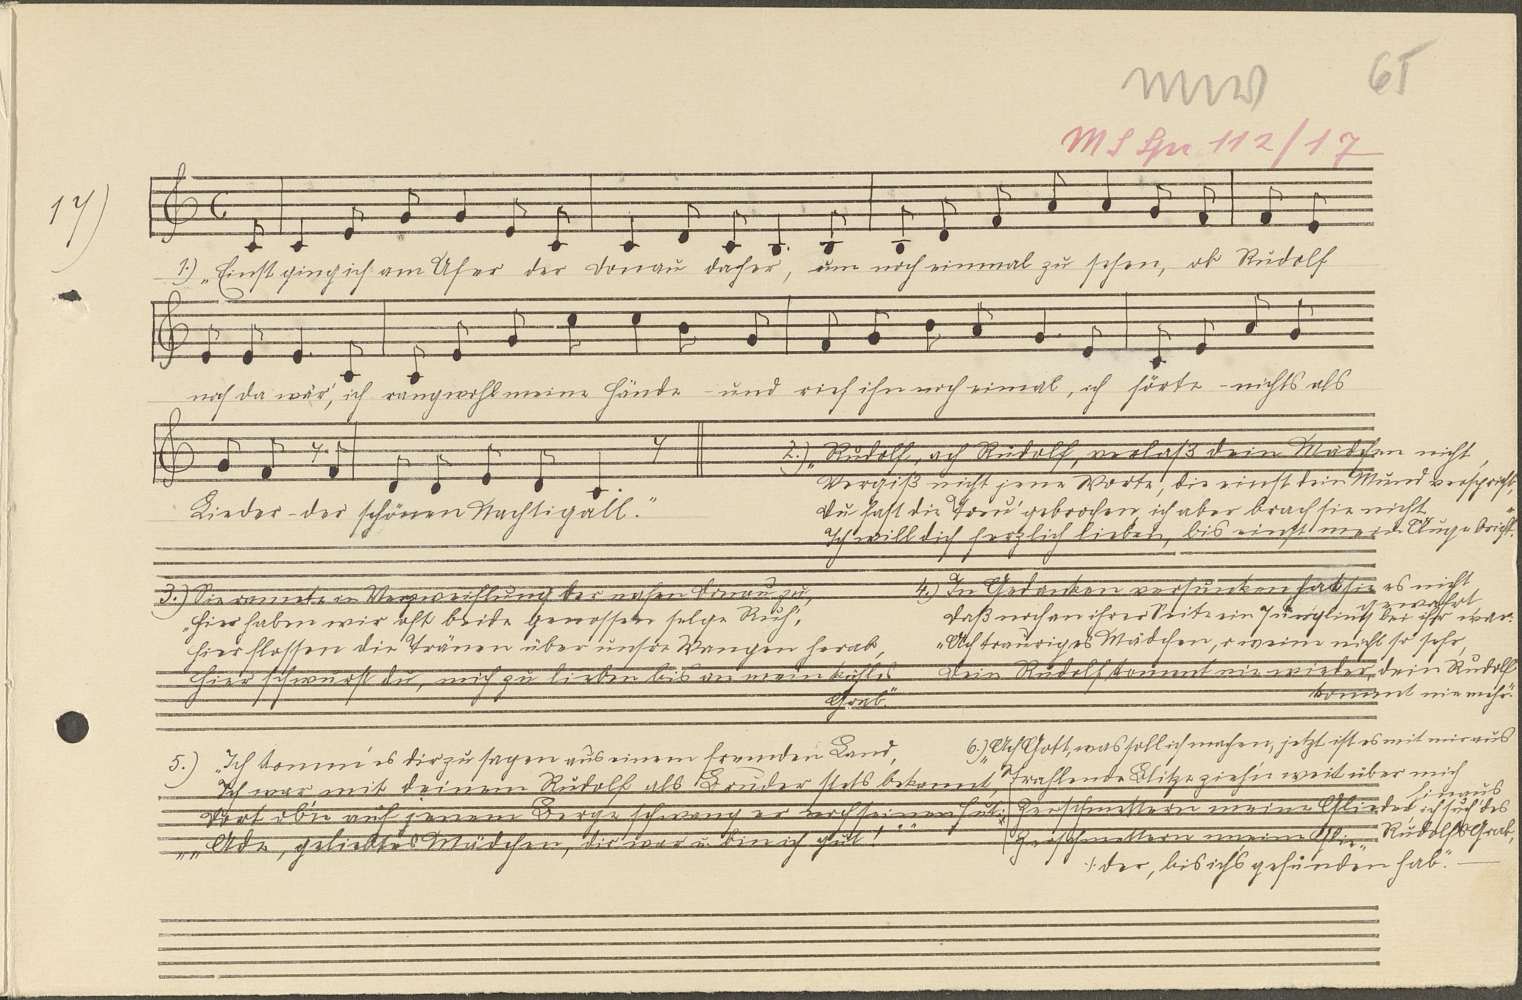 65
MS Spr 112/17
17)
1.) „Einst ging ich am Ufer der Donau daher, um noch einmal zu sehen, ob Rudolf
noch da wär', ich rang wohl meine Hände – und rief ihn noch eimal, ich hörte – nichts als
Lieder – der schönen Nachtigall."
2.) „Rudolf, ach Rudolf, verlaß dein Mädchen nicht,
Vergiß nicht jene Worte, die einst dein Mund verspricht,
Du hast die Treu' gebrochen, ich aber brach sie nicht
Ich will dich herzlich lieben, bis einst mein Auge bricht."
3.) Sie rannte in Verzweiflung der nahen Donau zu,
„Hier haben wir oft beide genossen selge Ruh',
Hier flossen die Tränen über unsre Wangen herab,
Hier schwurst du, mich zu lieben bis an mein kühles
Grab."
4.) In Gedanken versunken hat sie es nicht
gewahrt
Daß noch an ihrer Seite ein Jüngling bei ihr war.
„Ach trauriges Mädchen, weine nicht so sehr,
Dein Rudolf kommt nie wieder, dein Rudolf
kommt nie mehr."
5.) „Ich komm' es dir zu sagen aus einem fremden Land,
Ich war mit deinem Rudolf als Bruder stets bekannt,
Dort ob'n auf jenem Berge schwang er noch seinen Hut:
„„Ade, geliebtes Mädchen, dir war u. bin ich gut!""
6.) „Ach Gott, was soll ich machen, jetzt ist es mit mir aus
Strahlende Blitze zieh'n weit über mich
hinaus
Zerschmettern meine Glieder, ich such' des
Rudolfs Grab,
Zerschmettern meine Glie-
der, bis ichs gefunden hab'."